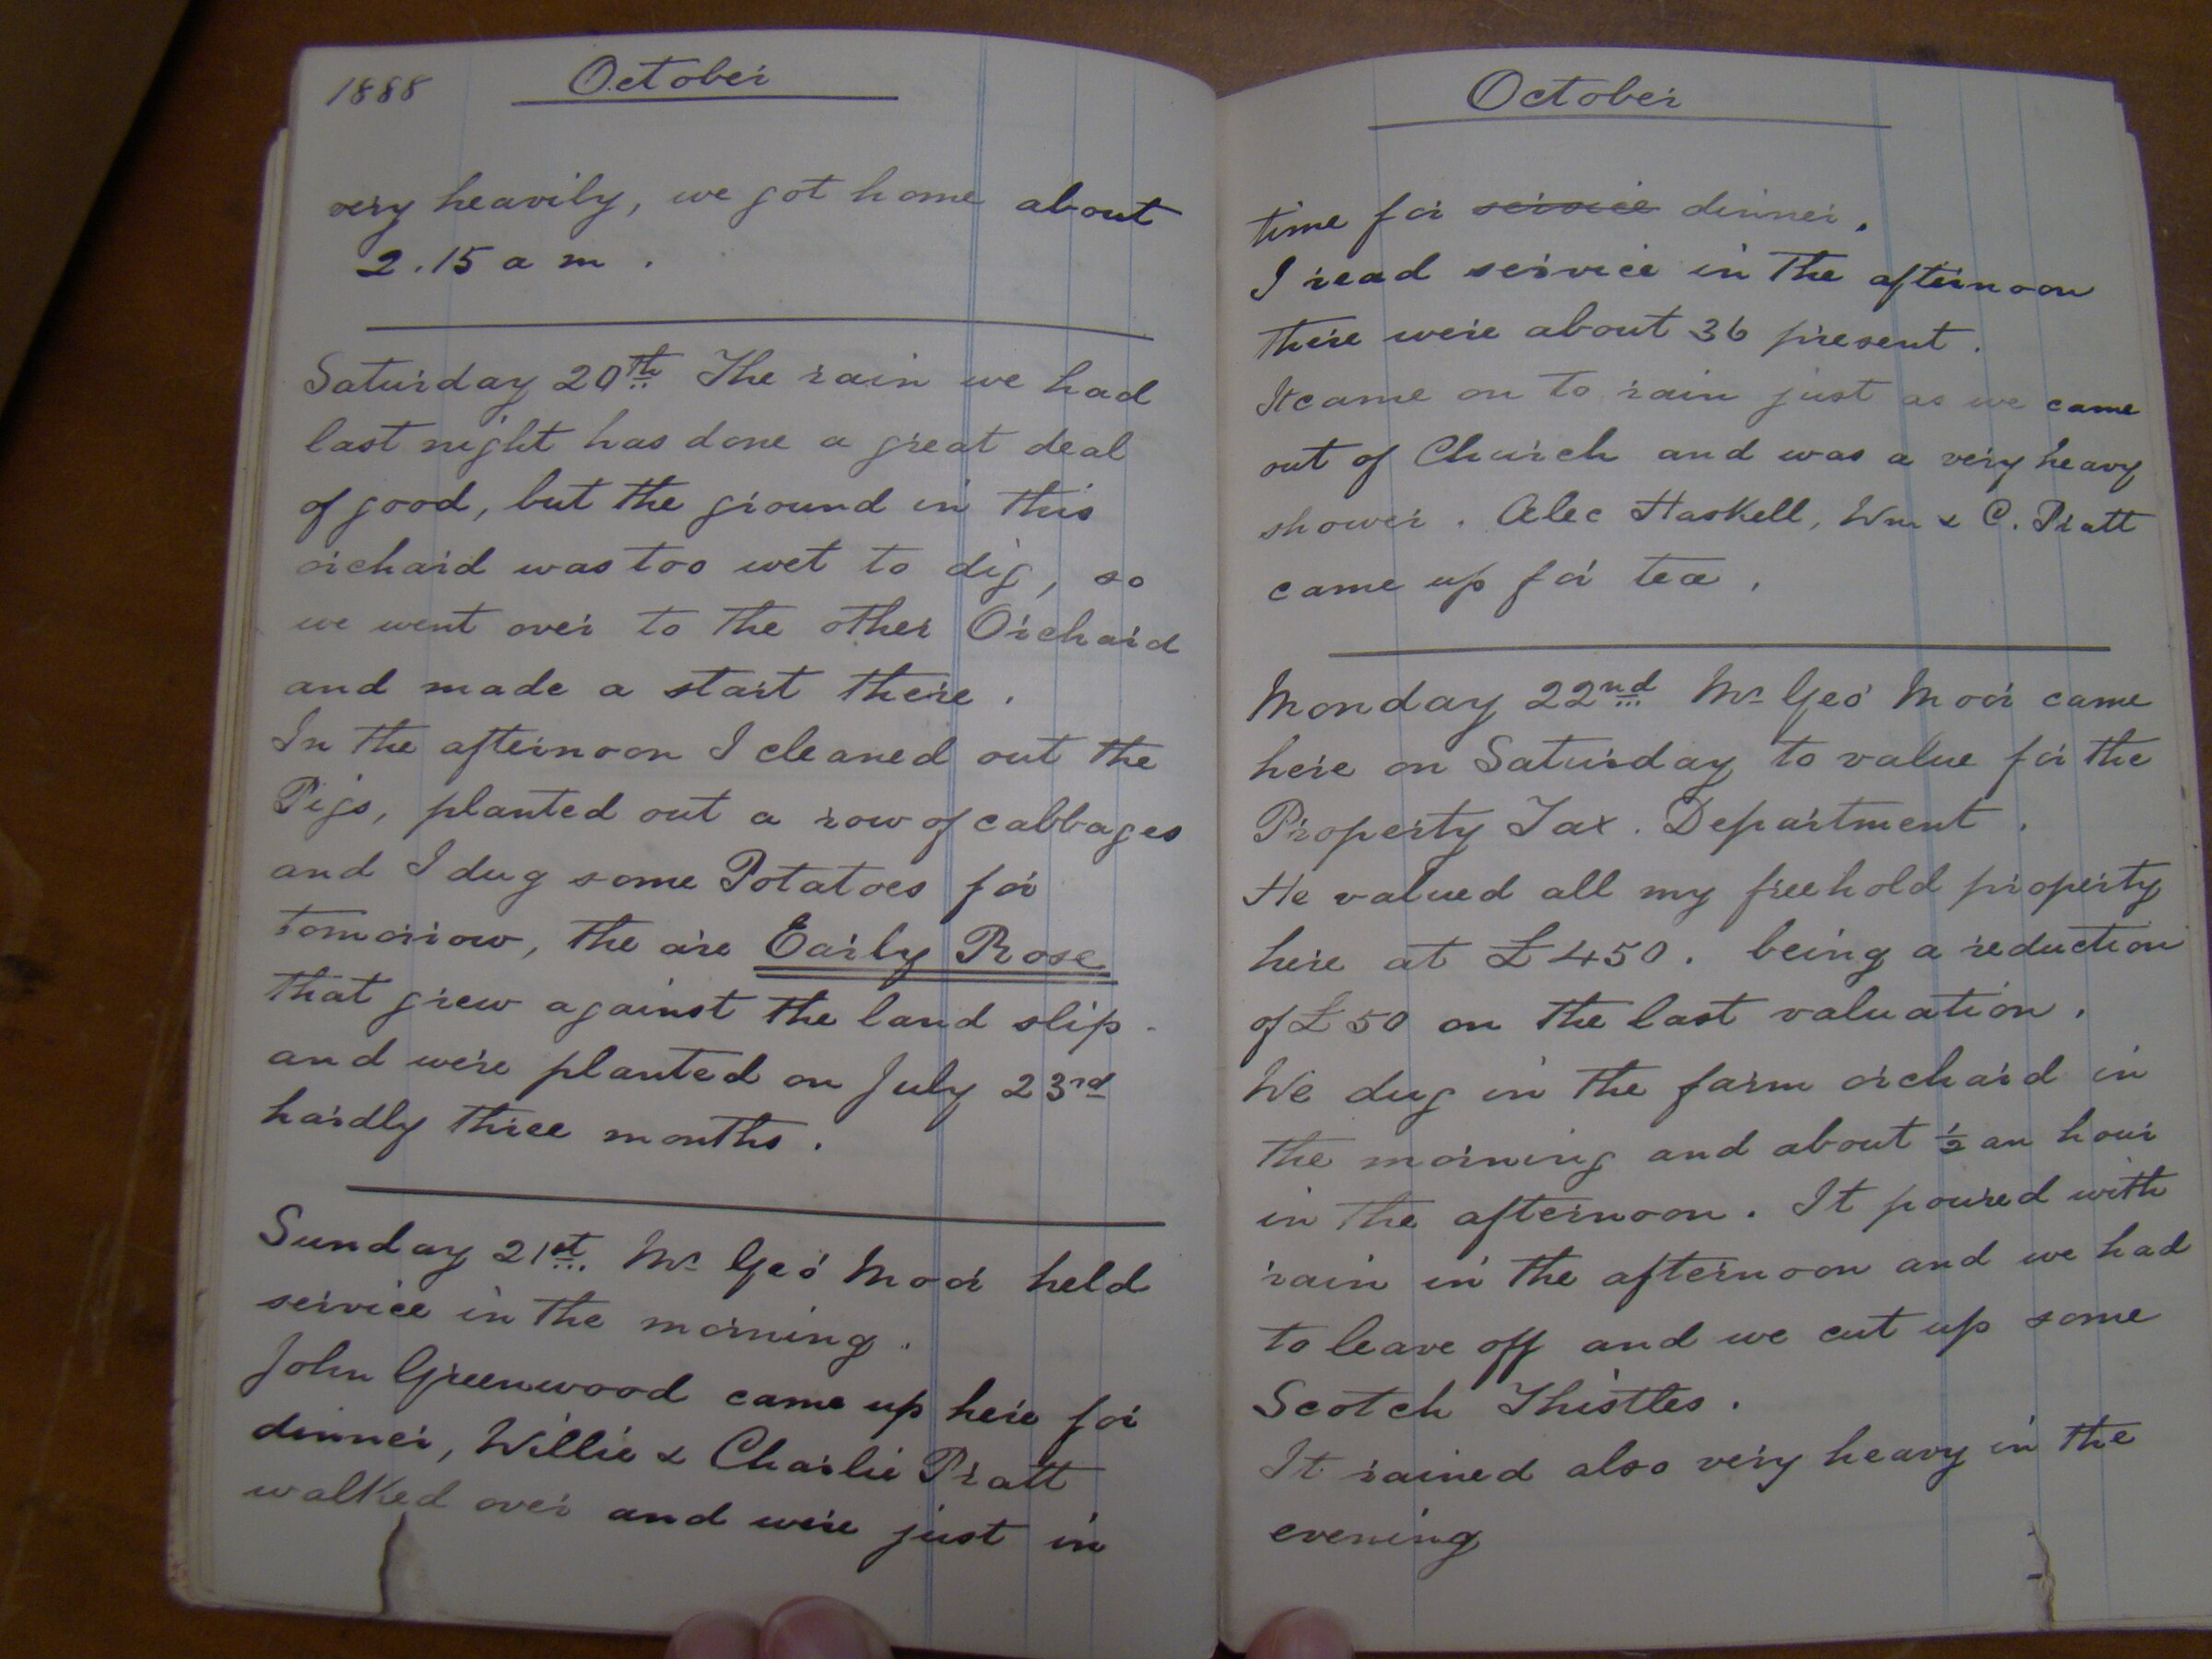 1888 October
very heavily, we got home about
2.15 a m.
Saturday 20th The rain we had
last night has done a great deal
of good, but the ground in this
orchard was too wet to dig, so
we went over to the other Orchard
and made a start there.
In the afternoon I cleaned out the
Pigs, planted out a row of cabbages
and I dug some Potatoes for
tomorrow, the are Early Rose
that grew against the land slip
and were planted on July 23rd
hardly three months.
Sunday 21st Mr Geo Moor held
service in the morning.
John Greenwood came up here for
dinner, Willie & Charlie Pratt
walked over and were just in
October
time for service dinner.
I read service in the afternoon
there were about 36 present.
It came on to rain just as we came
out of Church and was a very heavy
shower. Alec Haskell, Wm & C. Pratt
came up for tea.
Monday 22nd Mr Geo Moor came
here on Saturday to value for the
Property Tax. Department.
He valued all my freehold property
here at £450. being a reduction
of £50 on the last valuation.
We dug in the farm orchard in
the morning and about ½ an hour
in the afternoon. It poured with
rain in the afternoon and we had
to leave off and we cut up some
Scotch Thistles.
It rained also very heavy in the
evening